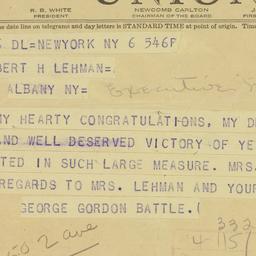 UNION
R. B. WHITE
PRESIDENT
NEWCOMB CARLTON
CHAIRMAN OF THE BOARD
FIRS
ne date line on telegrams and day letters is STANDARD TIME at point of origin. Time
DL=NEWYORK NY 6 546P
BERT H LEHMAN=
ALBANY NY=
Executive
MY HEARTY CONGRATULATIONS, MY D
AND WELL DESERVED VICTORY OF YE
TED IN SUCH LARGE MEASURE. MRS.
REGARDS TO MRS. LEHMAN AND YOUR
GEORGE GORDON BATTLE.(
2 ave
332
4 115